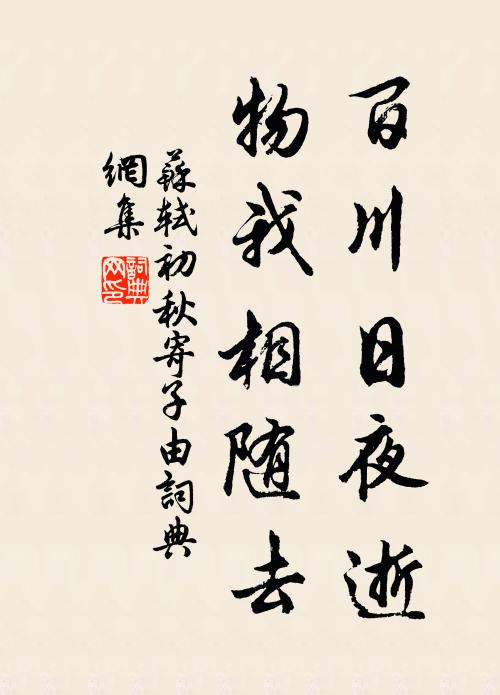 百川日夜逝
物我相随去
蘇軾初秋寄子由詞典
網集
詞典
网印